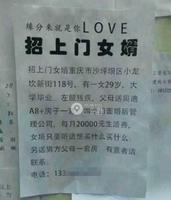 缘分来就是你LOVE
招上门女婿
招上门女婿重庆市沙坪坝区小龙
坎新街118号，有一女29岁，大
学毕业，左腿残疾，父母送周迪
A8+房子一
管理公司，每月20000元生活费，
女婿只要听话想买什么买什么，
另送男方父母一套房，有意者请
联系：
电话：133